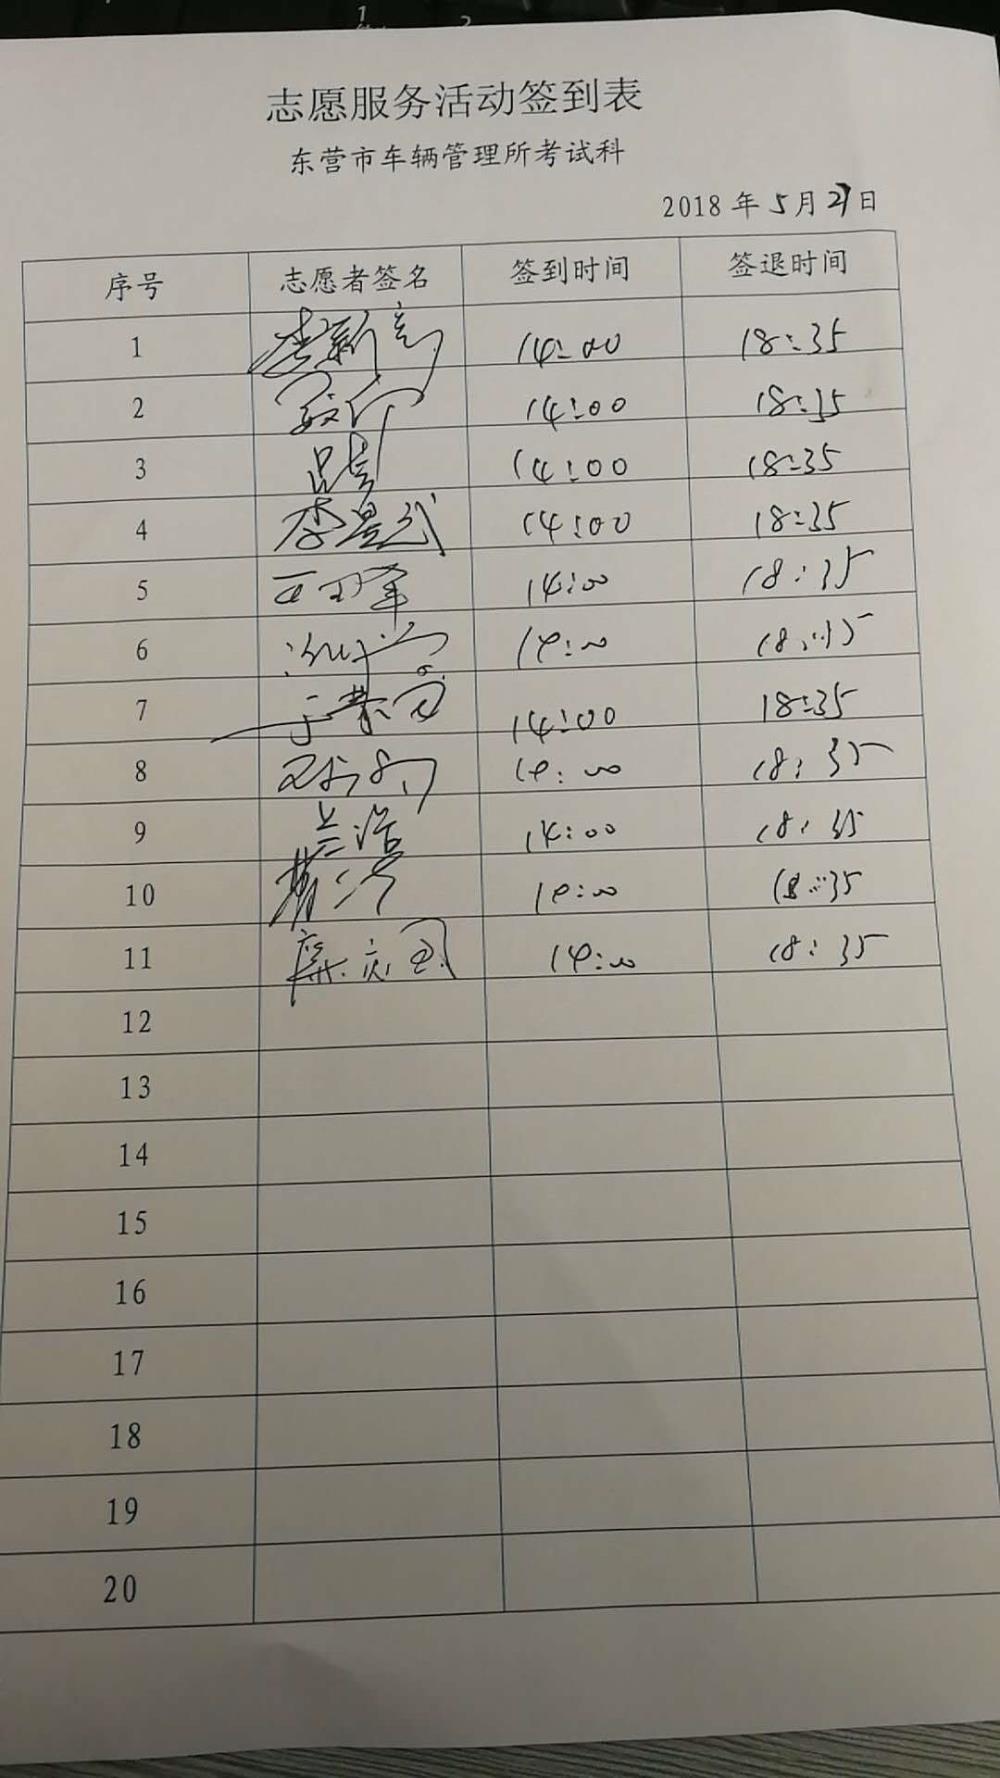 志愿服务活动签到表
东营市车辆管理所考试科
2018 年 5 月 日
序号 志愿者签名 签到时间 签退时间
1 14:00 18:35
2 14:00 18:35
3 吕 14:00 18:35
4 李星武 14:00 18:35
5 14:00 18:35
6 14:00 18:35
7 14:00 18:35
8 14:00 18:35
9 兰浩 14:00 18:35
10 14:00 18:35
11 14:00 18:35
12
13
14
15
16
17
18
19
20